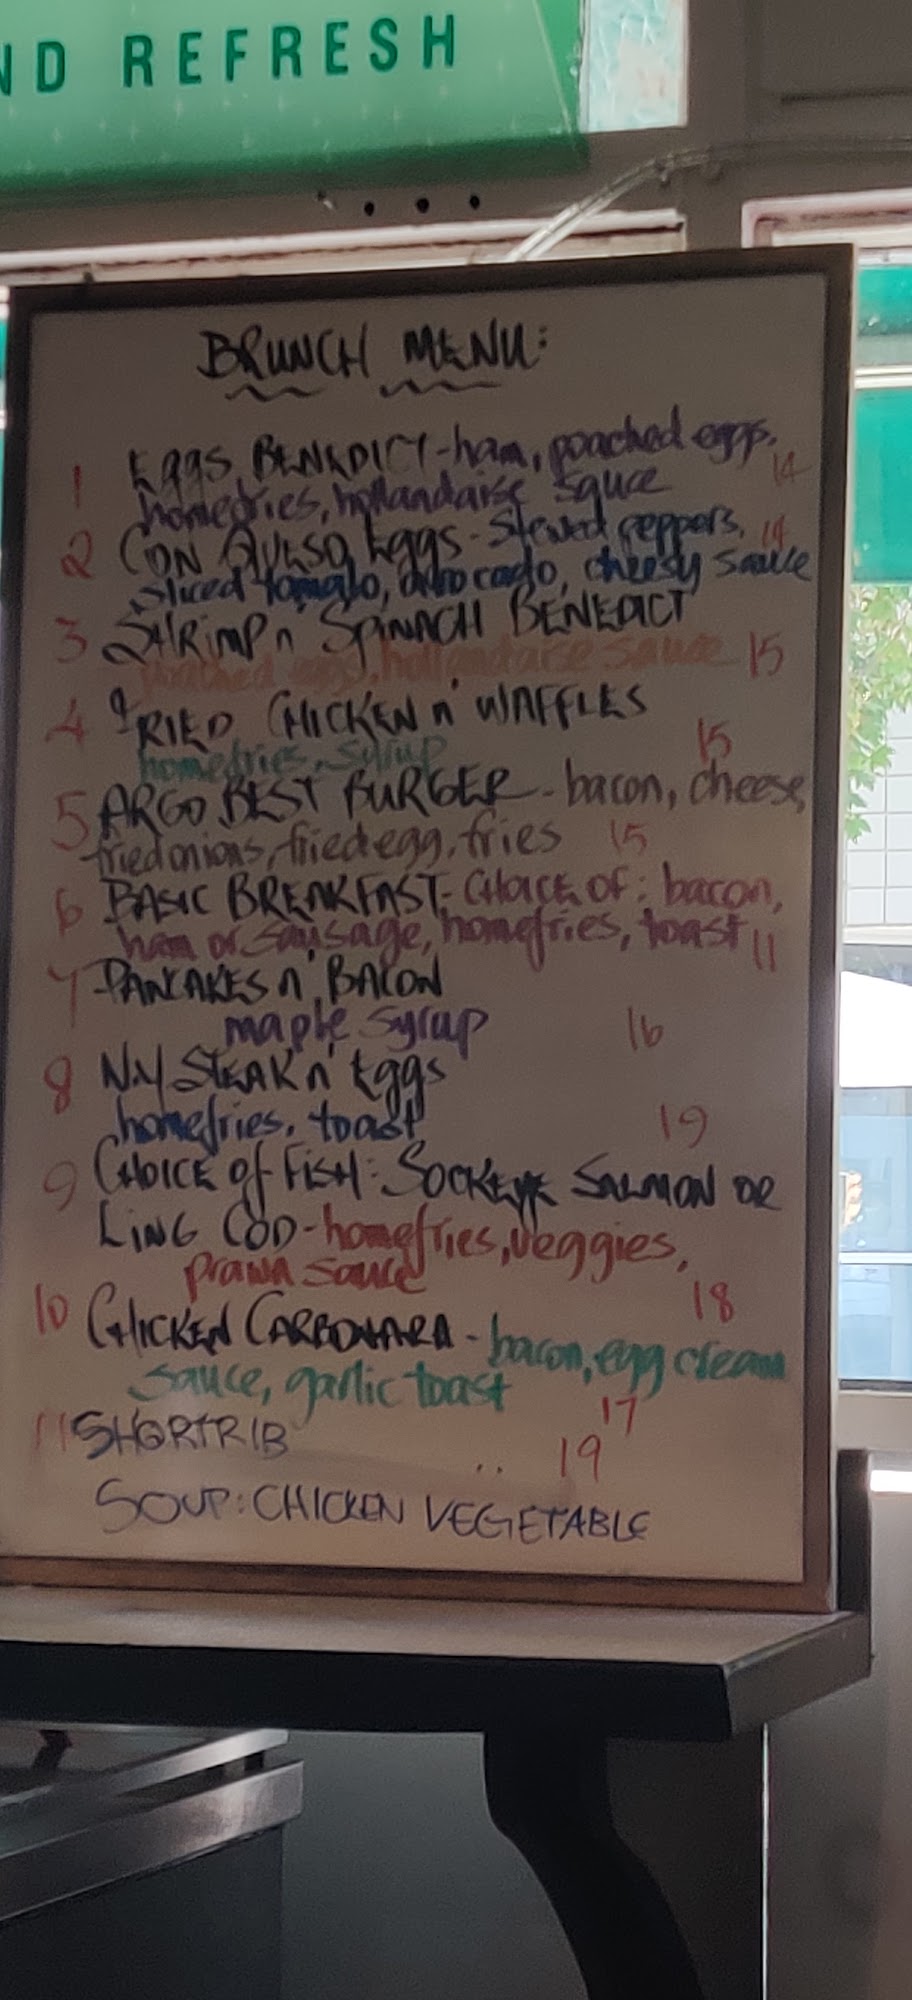 ND REFRESH
BRUNCH MENU:
1 EGGS BENEDICT - ham, poached eggs, 14
homefries, hollandaise sauce
2 CON QUESO EGGS - stewed peppers, 14
sliced tomato, avocado, cheesy sauce
3 SHRIMP n SPINACH BENEDICT
poached eggs, hollandaise sauce 15
4 FRIED CHICKEN n' WAFFLES
homefries, syrup 15
5 ARGO BEST BURGER - bacon, cheese,
fried onions, fried egg, fries 15
6 BASIC BREAKFAST - CHOICE OF: bacon,
ham or sausage, homefries, toast 11
7 PANCAKES n' BACON
maple syrup 16
8 N.Y STEAK n' Eggs
homefries, toast 19
9 CHOICE of FISH: SOCKEYE SALMON OR
LING COD - homefries, veggies,
prawn sauce 18
10 CHICKEN CARBONARA - bacon, egg cream
sauce, garlic toast 17
11 SHORTRIB .. 19
SOUP: CHICKEN VEGETABLE